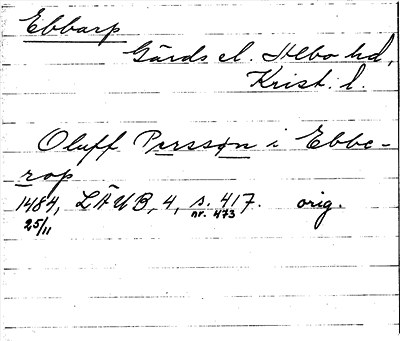 Ebbarp
Gärds el. Albo hd,
Krist. l.
Oluff Persson i Ebbe-
rop
1484, LÄUB, 4, s. 417. orig.
25/11 nr. 473